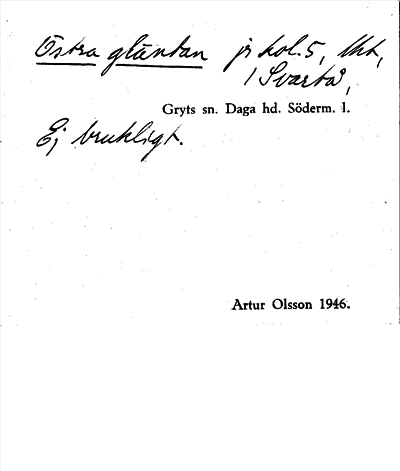 Östra gläntan jr kol. 5, Uht,
/ Svartå,
Gryts sn. Daga hd. Söderm. l.
Ej brukligt.
Artur Olsson 1946.